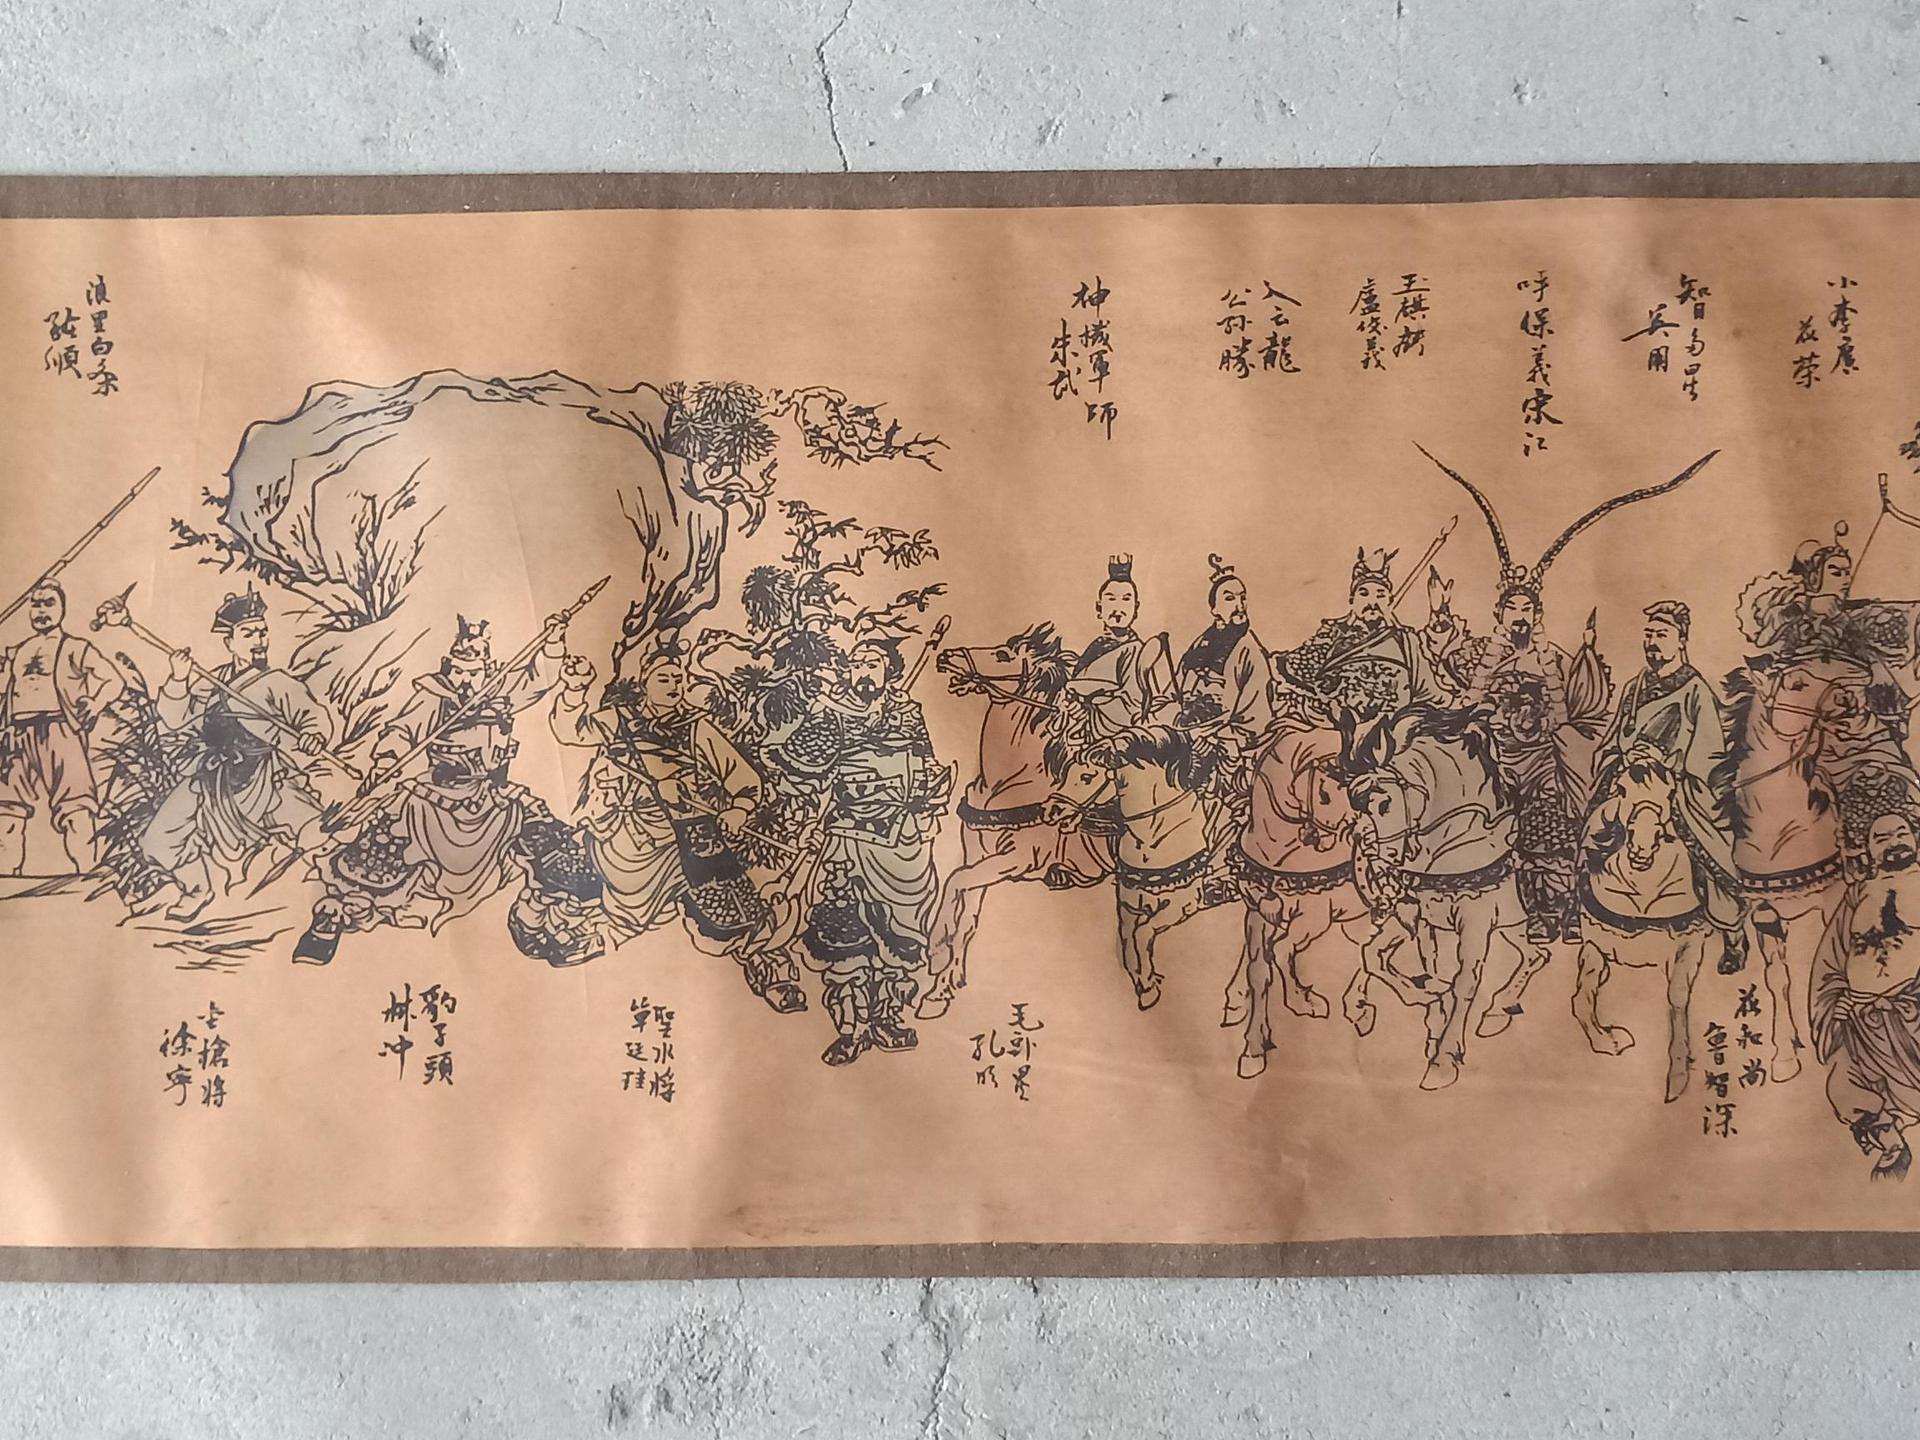 小李廣
花榮
智多星
吴用
呼保義宋江
玉麒麟
盧俊義
入云龍
公孫勝
神機軍師
朱武
浪里白条
張順
花和尚
魯智深
毛頭星
孔明
聖水將
單廷珪
金槍將
徐寧
豹子頭
林冲